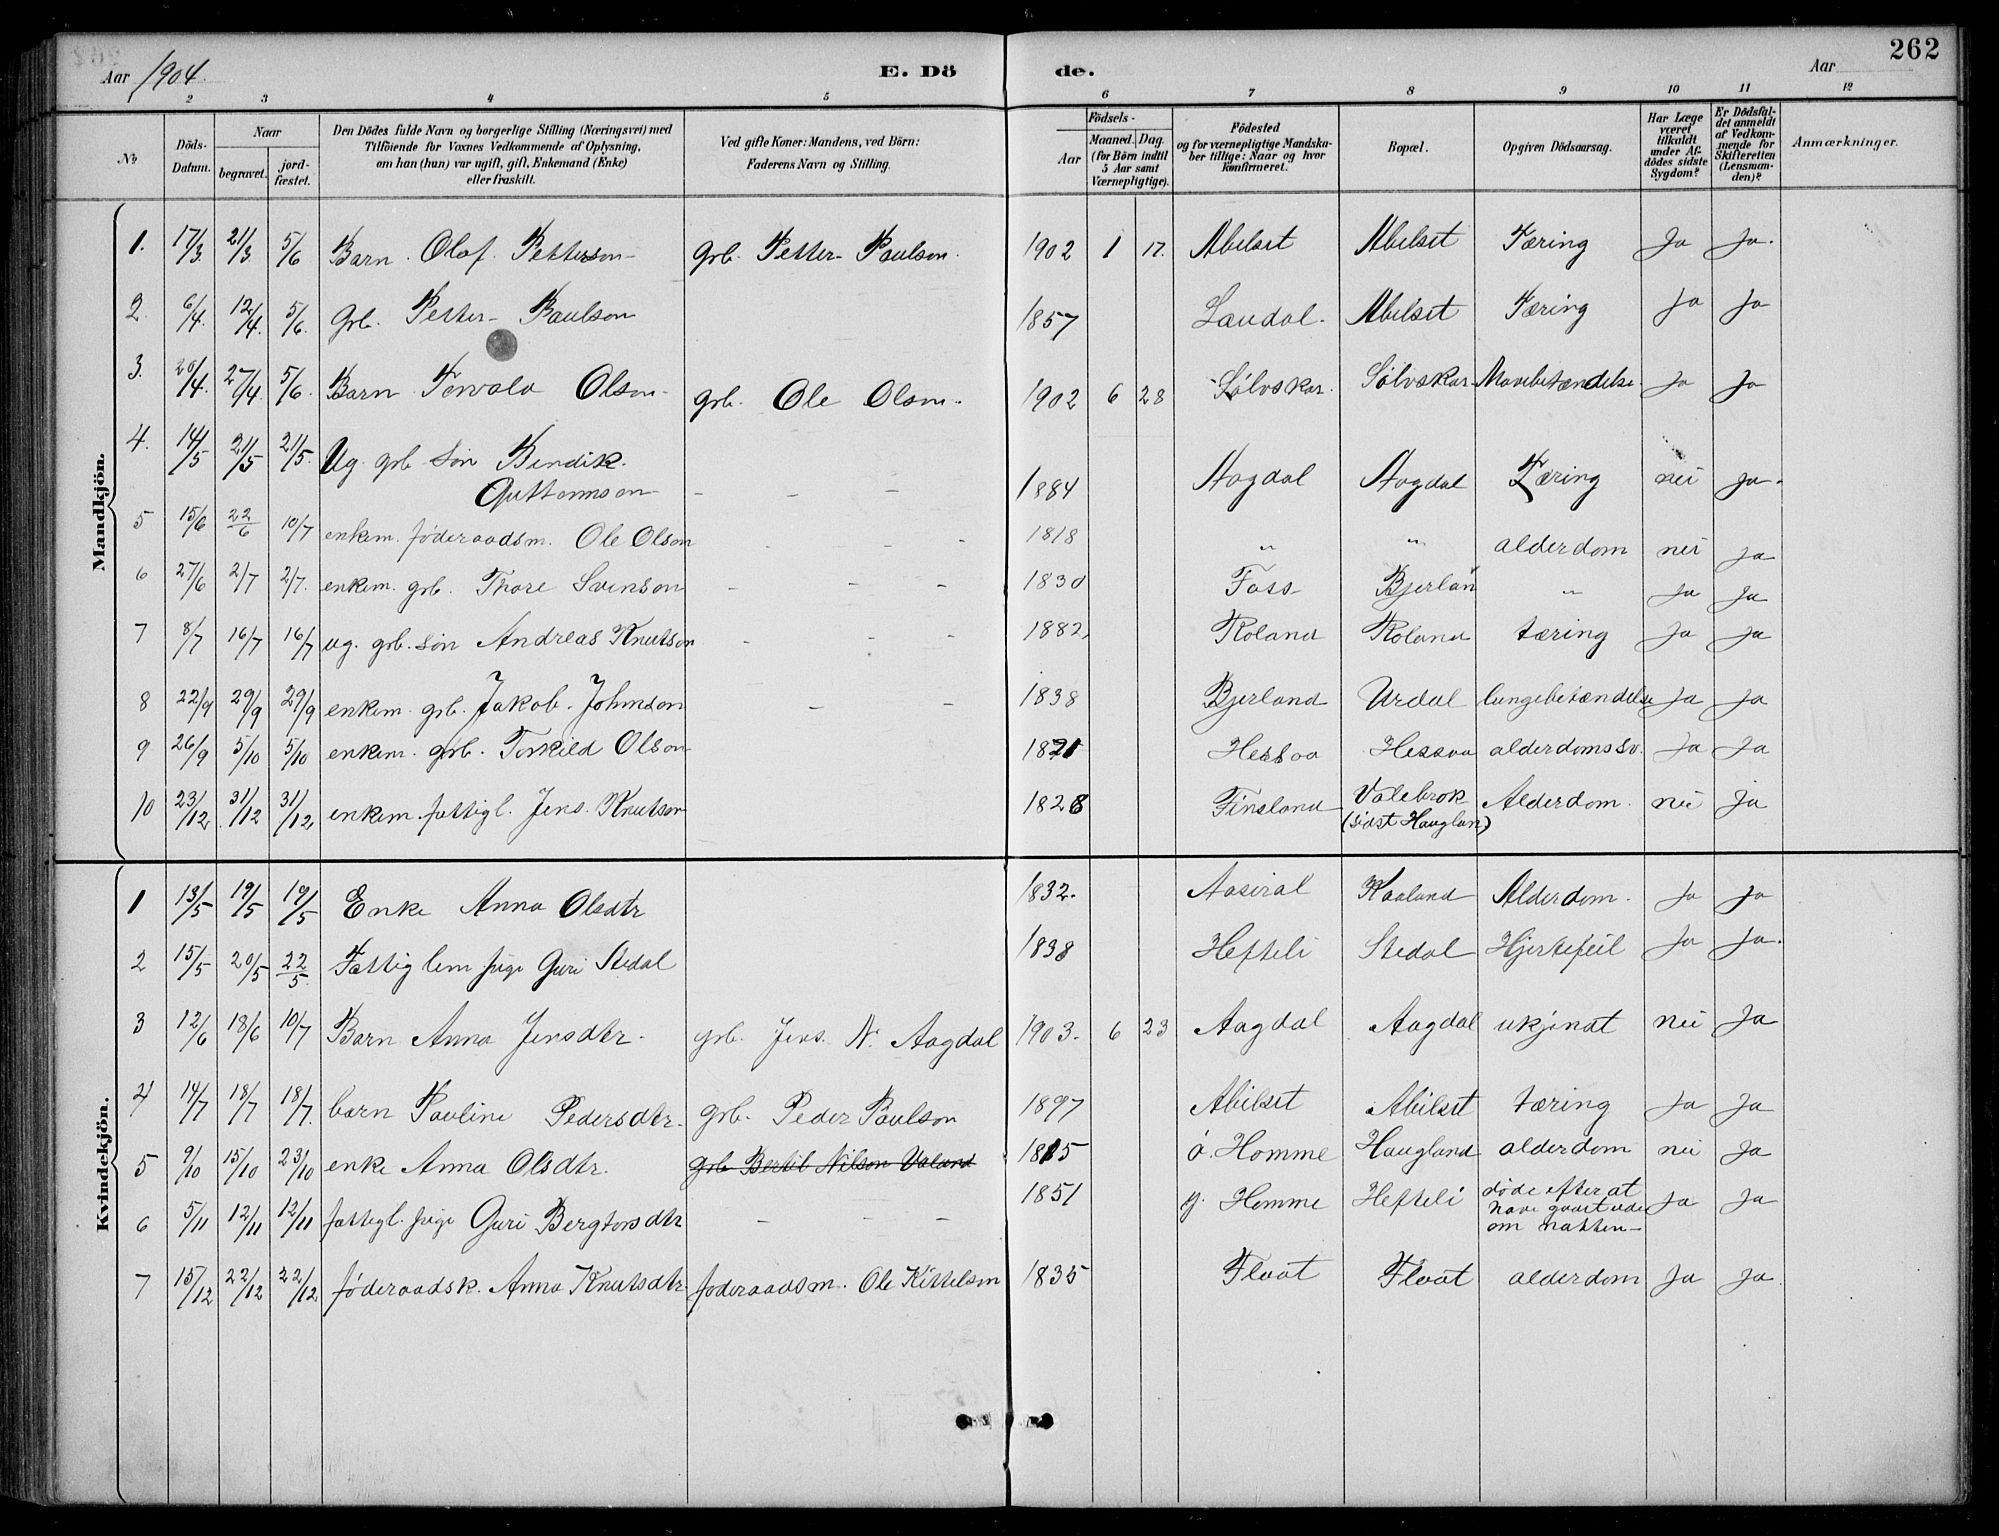 262
Aar 1904.
E. Döde.
Aar
1 2 3 4 5 6 7 8 9 10 11 12
No
Döds-Datum.
Naar
begravet.
jord-fæstet.
Den Dödes fulde Navn og borgerlige Stilling (Næringsvei) med
Tilföiende for Voxnes Vedkommende af Oplysning,
om han (hun) var ugift, gift, Enkemand (Enke)
eller fraskilt.
Ved gifte Koner: Mandens, ved Börn:
Faderens Navn og Stilling.
Födsels-
Aar
Maaned. Dag.
(for Börn indtil
5 Aar samt
Værnepligtige).
Födested
og for værnepligtige Mandska-
ber tillige: Naar og hvor
konfirmeret.
Bopæl.
Opgiven Dödsaarsag.
Har Læge
været
tilkaldt
under Af-
dödes sidste
Sygdom?
Er Dödsfal-
det anmeldt
af Vedkom-
mende for
Skifteretten
(Lensman-
den)?
Anmærkninger.
Mandkjön.
1. 17/3. 21/3. 5/6 Barn. Olaf. Petterson- grb. Petter- Paulson. 1902 1 17. Abelset Abelset Tæring Ja Ja.
2. 6/4. 12/4. 5/6. Grb. Petter- Paulson 1857 Laudal. Abelset Tæring Ja Ja
3. 20/4. 27/4. 5/6. Barn Torvald Olson- grb. Ole Olson. 1902 6 28 Sølvskar. Sølvskar. Mavebetændelse. Ja Ja
4. 14/5 21/5 21/5. Ug. grb. søn Bendik.
Guttormson - - - 1884 Aagdal Aagdal Tæring nei Ja.
5 15/6 22/6 10/7 enkem. føderaadsm. Ole Olson - - 1818 " " alderdom nei Ja
6 27/6 2/7 2/7. enkem. grb. Thore Svenson - - - 1830 Foss Bjerlan " Ja Ja
7 8/7 16/7 16/7 ug. grb. søn Andreas Knutson - - - 1882, Roland Roland tæring Ja Ja
8 22/9 29/9 29/9 enkem. grb. Jakob. Johnson - - 1838 Bjerland Urdal lungebetændelse Ja Ja
9 26/9 5/10 5/10 enkem. grb. Torkild Olson- 1821 Hessaa Hessaa alderdomssv. Ja Ja
10 23/12. 31/12 31/12, enkem. fattigl. Jens. Knutson 1828 Finsland Valebrok
(sidst Hauglan) Alderdom. nei Ja
Kvindekjön.
1 13/5 19/5 19/5 Enke Anna Olsdtr 1832. Aaseral Kaaland Alderdom. Ja Ja
2 15/5 20/5 22/5. Fattiglem pige Guri Stedal 1838 Hefteli Stedal Hjertefeil Ja Ja.
3 12/6 18/6 10/7 Barn Anna Jensdtr. grb. Jens. N. Aagdal 1903. 6 23 Aagdal Aagdal ukjendt nei Ja
4 14/7 18/7 18/7. barn Pauline Pedersdtr. grb. Peder Paulson 1897 Abelset Abelset tæring Ja Ja
5 9/10 15/10 23/10 enke Anna Olsdtr. grb Bertil Nilson Valand 1815 ø. Homme Haugland alderdom nei Ja
6 5/11 12/11 12/11 fattigl. pige Guri Bergtorsdtr - - - 1851 y. Homme Hefteli døde efter at
have gaaet ude
om natten- Ja Ja
7 15/12 22/12 22/12 føderaadsk. Anna Knutsdtr. føderaadsm. Ole Kittelson 1835 Flaat Flaat alderdom Ja Ja